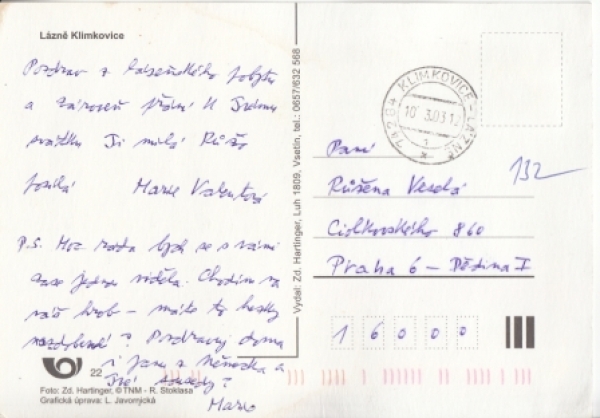 Lázně Klimkovice
Pozdrav z lázeňského pobytu
a zároveň přání k Tvému
svátku Ti milá Růžo
posílá Marie Valentová
P.S. Moc ráda bych se s vámi
zase jednou viděla. Chodím na
váš hrob - máte to hezky
nazdobené? Pozdravuj doma
i Janu z
Marie
22
Foto: Zd. Hartinger, ©TNM - R. Stoklasa
Grafická úprava: L. Javornjická
Vydal: Zd. Hartinger, Luh 1809, Vsetín, tel.: 0657/632 568
742 84 KLIMKOVICE-LÁZNĚ
10.3.03
1
Paní
Růžena Veselá
Ciolkovského 860
Praha 6 - Dědina I
132
16000